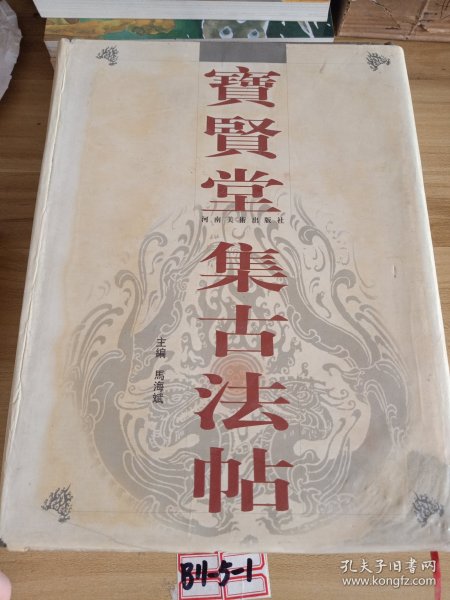 寶賢堂
河南美術出版社
集古法帖
主編 馬海斌
B11-5-1
孔夫子旧书网
www.kongfz.com